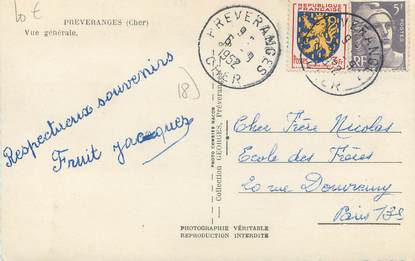 10 €
PRÉVERANGES (Cher)
Vue générale.
PREVERANGES
9
6 - 9
1952
CHER
REPUBLIQUE
FRANÇAISE
5F
RF
(8)
Respectueux souvenirs
Fruit Jacques
PHOTO COMBIER MACON
Collection GEORGES, Préveranges
Cher Frère Nicolas
Ecole des Frères
20 rue Domremy
Paris 13e
PHOTOGRAPHIE VÉRITABLE
REPRODUCTION INTERDITE